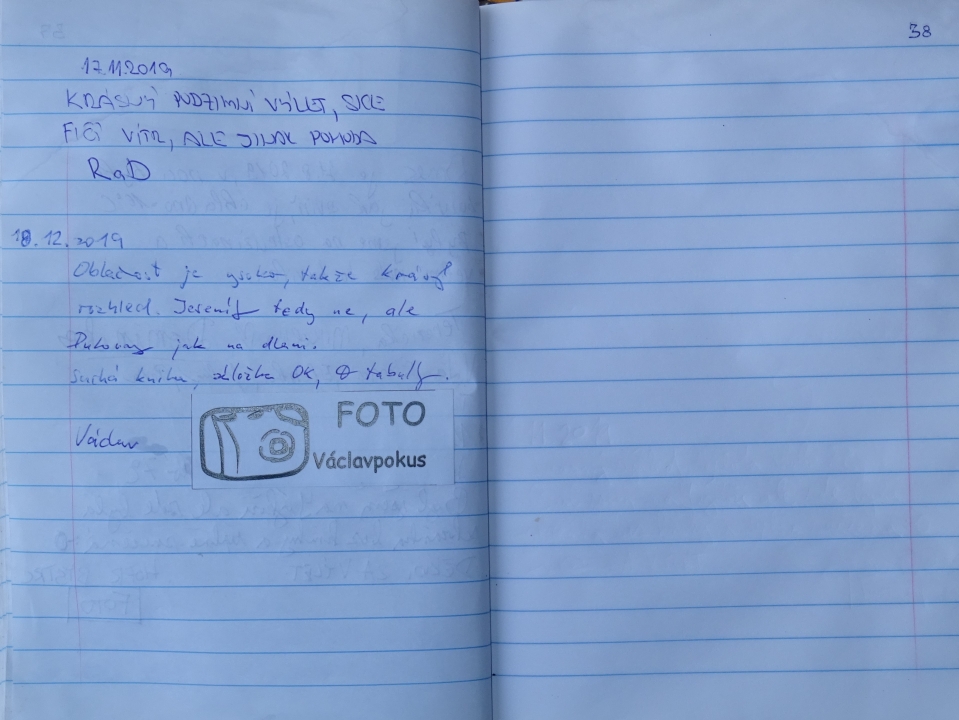 17.11.2019
KRÁSNÝ PODZIMNÍ VÝLET, SICE
FIČÍ VÍTR, ALE JINAK POHODA
RaD
18.12.2019
Oblačnost je vysoko, takže krásný
rozhled. Jeseníky tedy ne, ale
jak na dlani.
Suchá kniha, složka OK, tabulky.
Václav
FOTO
Václavpokus
38